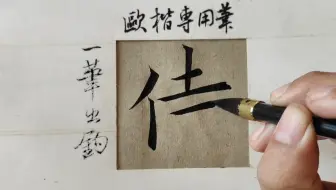 歐楷專用筆
一筆出鈎